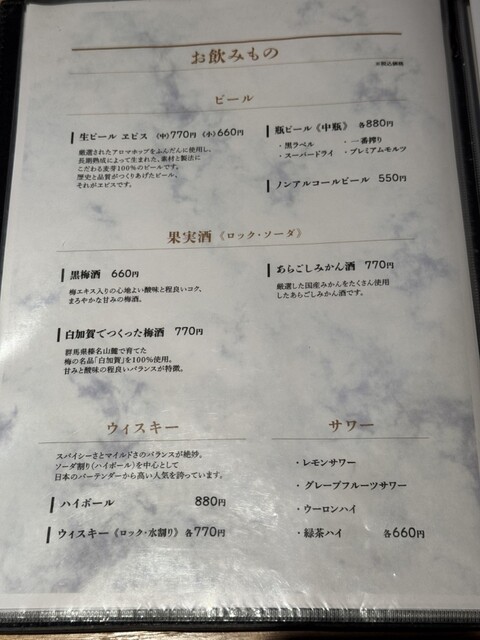 お飲みもの
※税込価格
ビール
生ビール ヱビス 《中》770円 《小》660円
厳選されたアロマホップをふんだんに使用し、
長期熟成によって生まれた、素材と製法に
こだわる麦芽100%のビールです。
歴史と品質がつくりあげたビール、
それがヱビスです。
瓶ビール《中瓶》 各880円
・黒ラベル ・一番搾り
・スーパードライ ・プレミアムモルツ
ノンアルコールビール 550円
果実酒《ロック・ソーダ》
黒梅酒 660円
梅エキス入りの心地よい酸味と程良いコク、
まろやかな甘みの梅酒。
あらごしみかん酒 770円
厳選した国産みかんをたくさん使用
したあらごしみかん酒です。
白加賀でつくった梅酒 770円
群馬県榛名山麓で育てた
梅の名品「白加賀」を100%使用。
甘みと酸味の程良いバランスが特徴。
ウィスキー
スパイシーさとマイルドさのバランスが絶妙。
ソーダ割り(ハイボール)を中心として
日本のバーテンダーから高い人気を誇っています。
ハイボール 880円
ウィスキー《ロック・水割り》 各770円
サワー
・レモンサワー
・グレープフルーツサワー
・ウーロンハイ
・緑茶ハイ 各660円